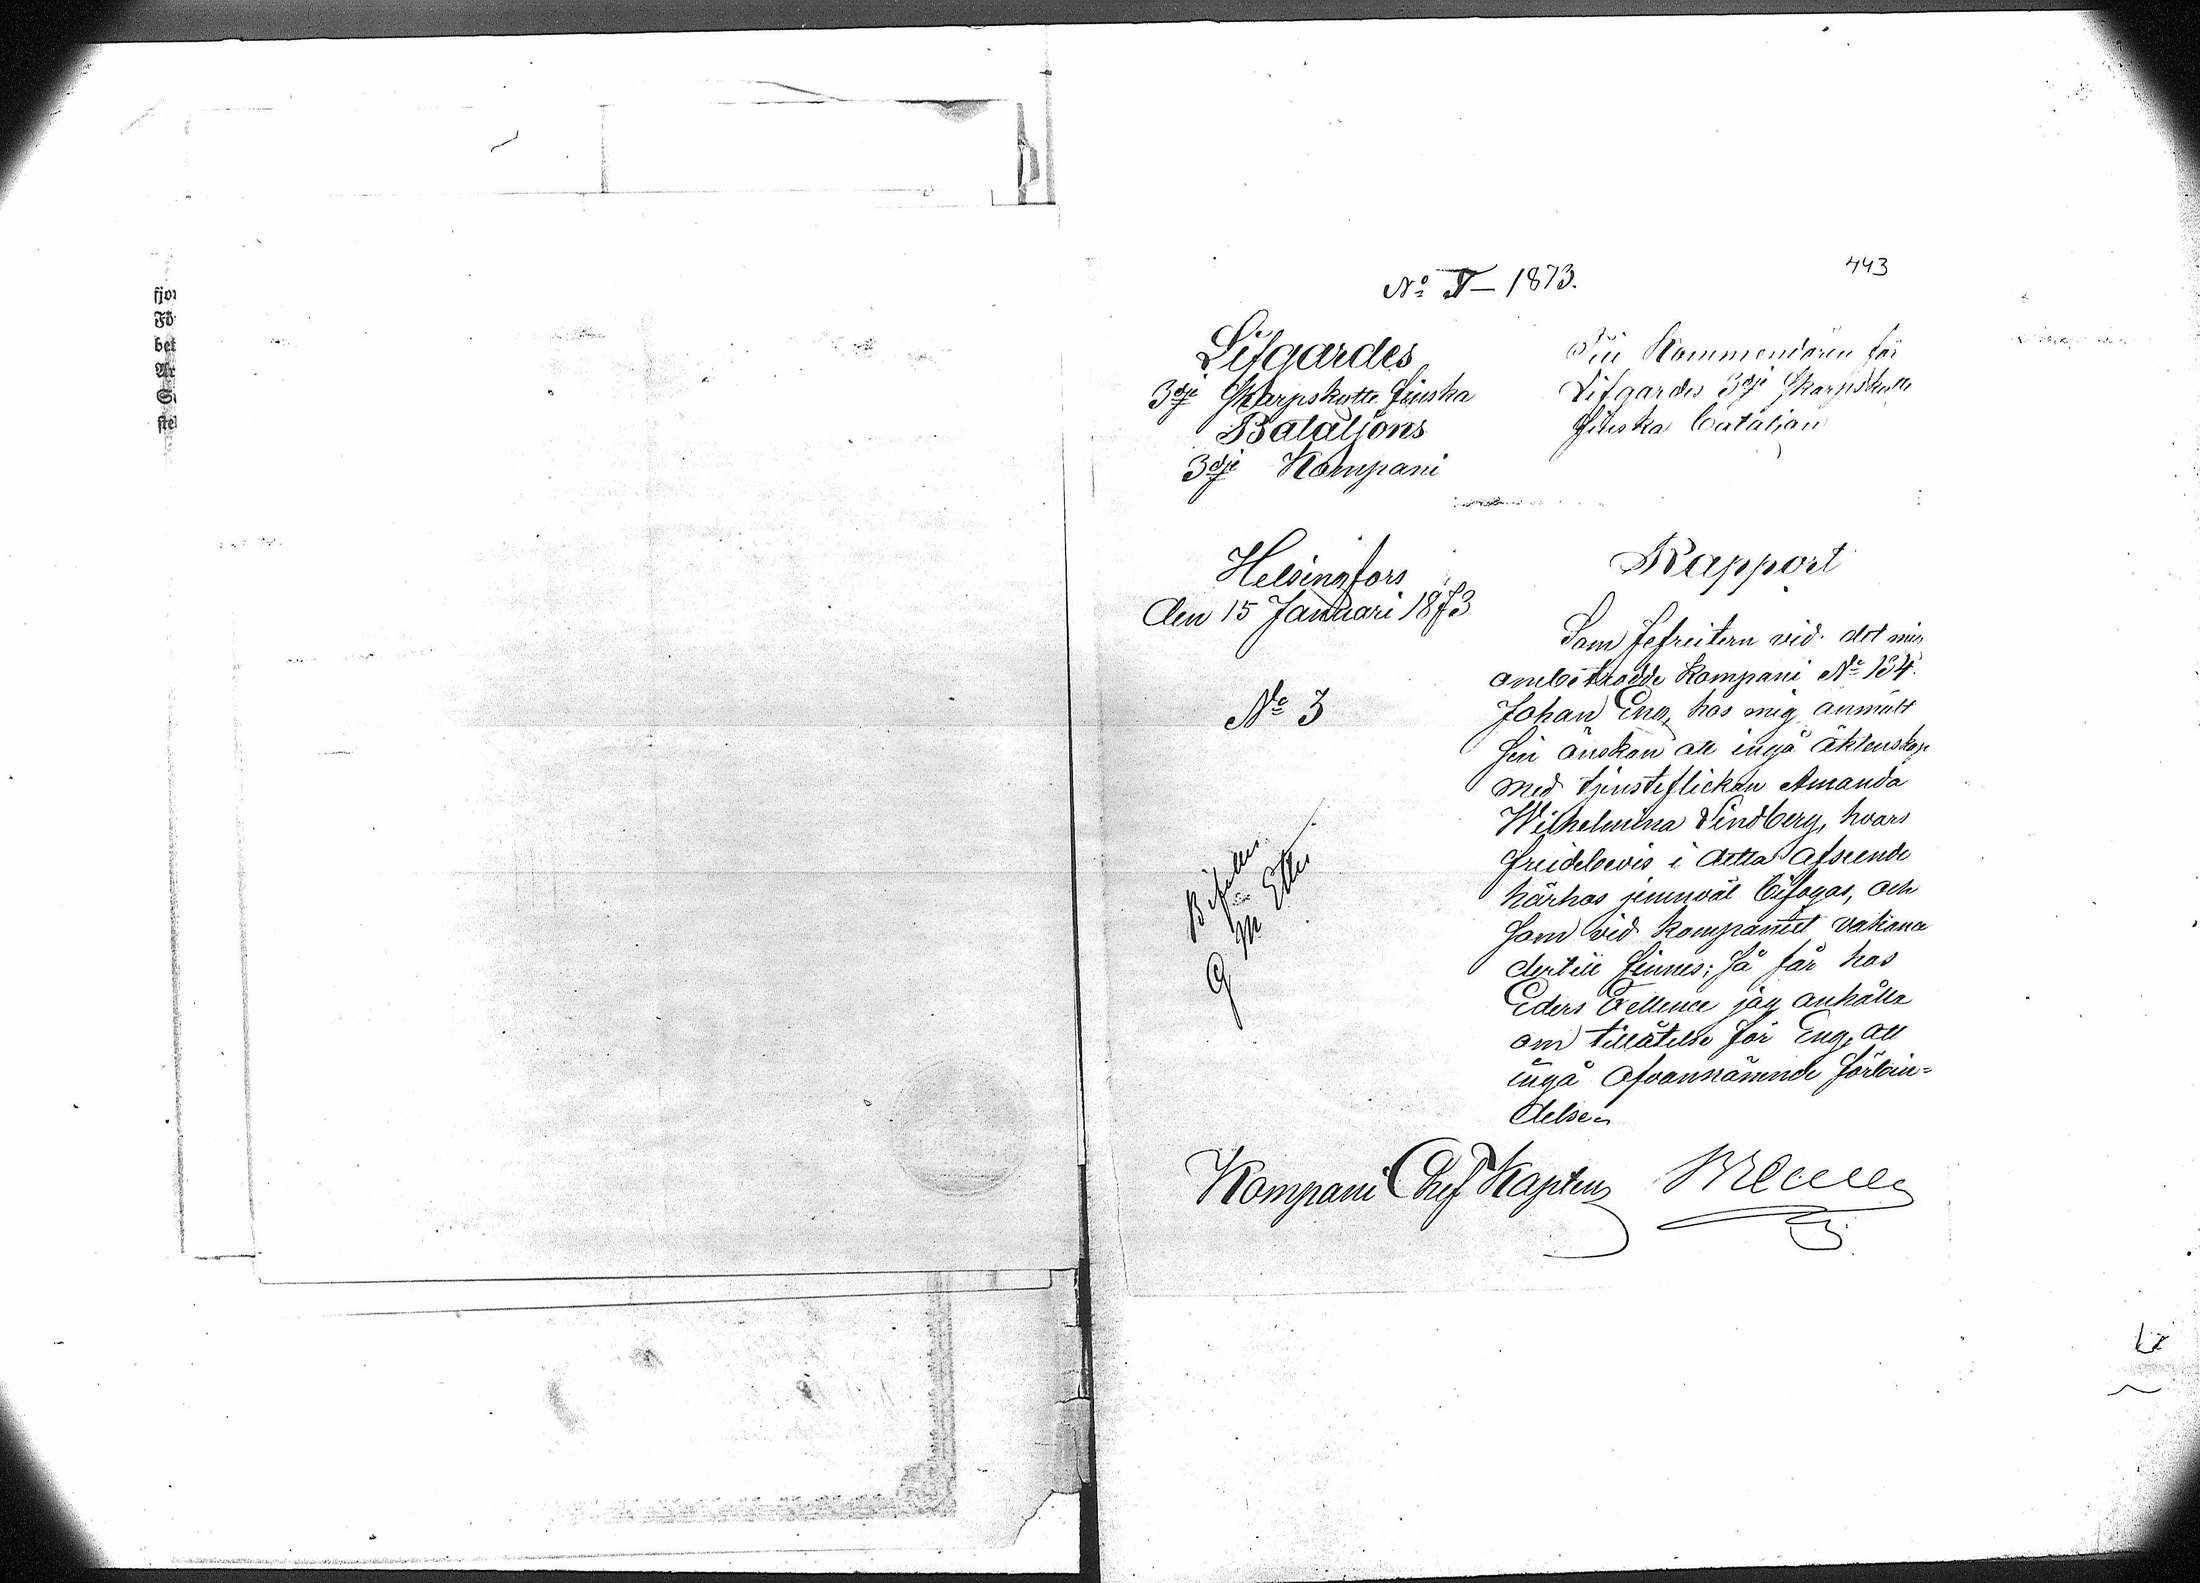 fjor
Fö
bet
Ar
S
stel
443
No V – 1873.
Lifgardes
3dje Skarpskytte Finska
Bataljons
3dje Kompani
Till Kommendören för
Lifgardes 3dje Skarpskytte
Finska Bataljon
Helsingfors
den 15 Januari 1873
No 3
Bifalles
G M Etter
Rapport
Som Gefreitern vid det mig
ombetrodde Kompani No 134
Johan Eng, hos mig anmält
sin önskan att ingå äktenskap
med tjensteflickan Amanda
Wilhelmina Lindberg, hvars
frejdebevis i detta afseende
härhos jemnväl bifogas, och
som vid kompaniet vakance
dertill finnes; så får hos
Eders Excellence jag anhålla
om tillåtelse för Eng, att
ingå ofvannämnde förbin-
delse.
Kompani Chef Kapten